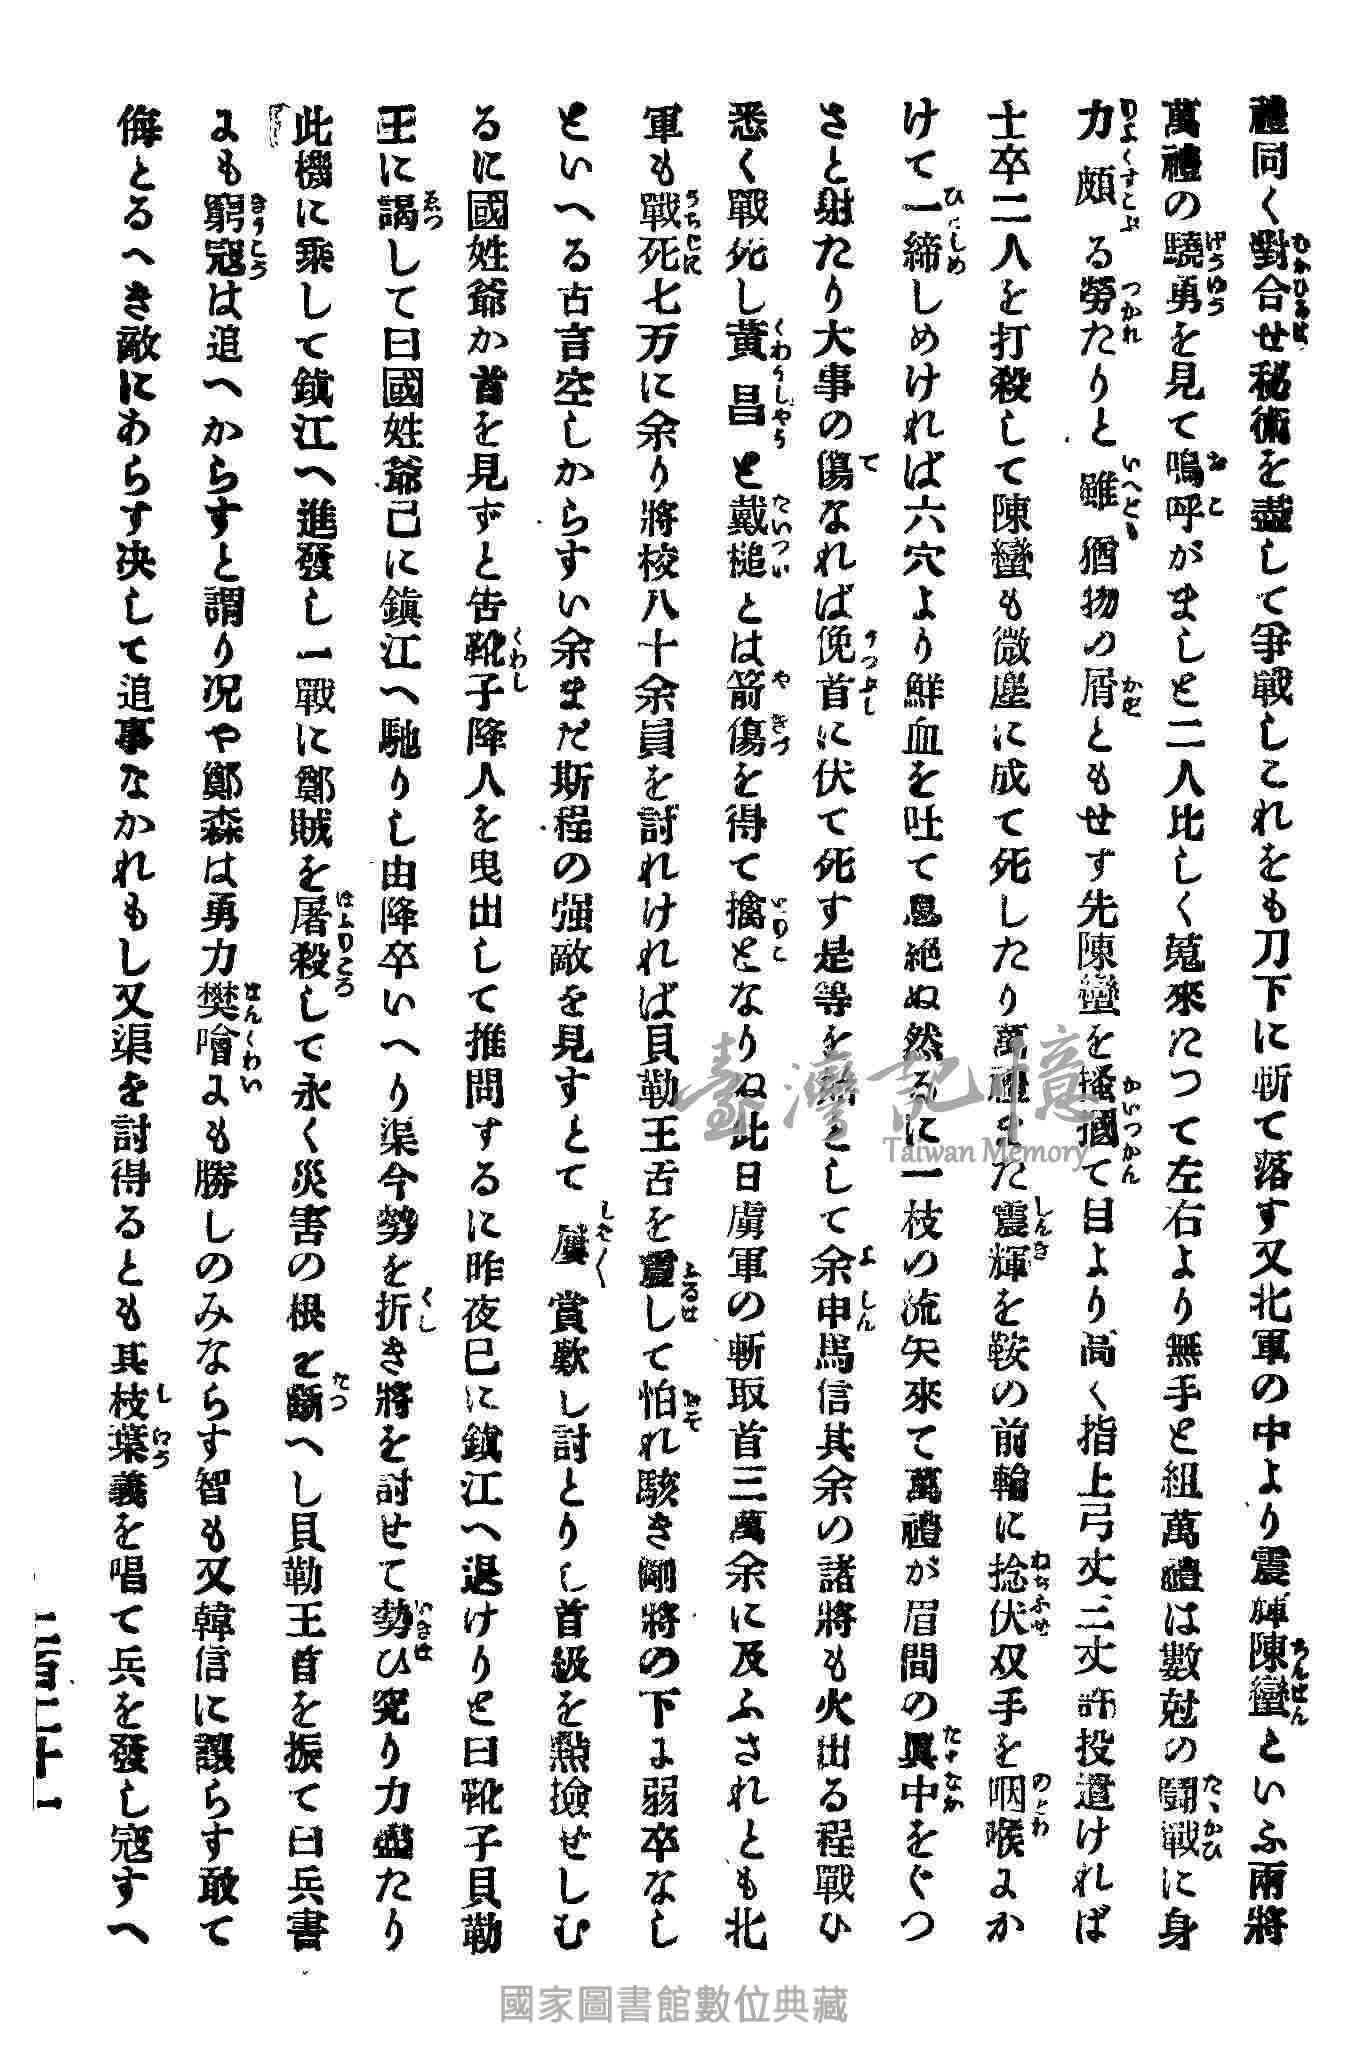 禮同く對合せ秘術を盡して爭戰しこれをも刀下に斬て落す又北軍の中より震輝陳蠻といふ兩將
萬禮の驍勇を見て嗚呼がましと二人比しく蒐來たつて左右より無手と組萬禮は數尅の鬪戰に身
力頗る勞たりと雖猶物の屑ともせす先陳蠻を掻摑て目より高く指上弓丈二丈許投遣ければ
士卒二人を打殺して陳蠻も微塵に成て死したり萬禮また震輝を鞍の前輪に捻伏双手を咽喉よか
けて一締しめければ六穴より鮮血を吐て息絶ぬ然るに一枝の流矢來て萬禮が眉間の眞中をぐつ
さと射たり大事の傷なれば俛首に伏て死す是等を始として余申馬信其余の諸將も火出る程戰ひ
悉く戰死し黄昌と戴槌とは箭傷を得て擒となりぬ此日虜軍の斬取首三萬余に及ふされとも北
軍も戰死七万に余り將校八十余員を討れければ貝勒王舌を震して怕れ駭き剛將の下よ弱卒なし
といへる古言空しからすい余まだ斯程の强敵を見すとて屢賞歎し討とりし首級を點撿ぜしむ
るに國姓爺か首を見ずと告靴子降人を曳出して推問するに昨夜已に鎮江へ退けりと曰靴子貝勒
王に謁して曰國姓爺己に鎮江へ馳りし由降卒いへり渠今勢を折き將を討せて勢ひ究り力盡たり
此機に乘して鎮江へ進發し一戰に鄭賊を屠殺して永く災害の根を斷へし貝勒王首を振て曰兵書
よも窮寇は追へからすと謂り况や鄭森は勇力樊噲よも勝しのみならす智も又韓信に讓らす敢て
侮とるへき敵にあらす决して追事なかれもし又渠を討得るとも其枝葉義を唱て兵を發し寇すへ
二百二十一
臺灣記憶
Taiwan Memory
國家圖書館數位典藏